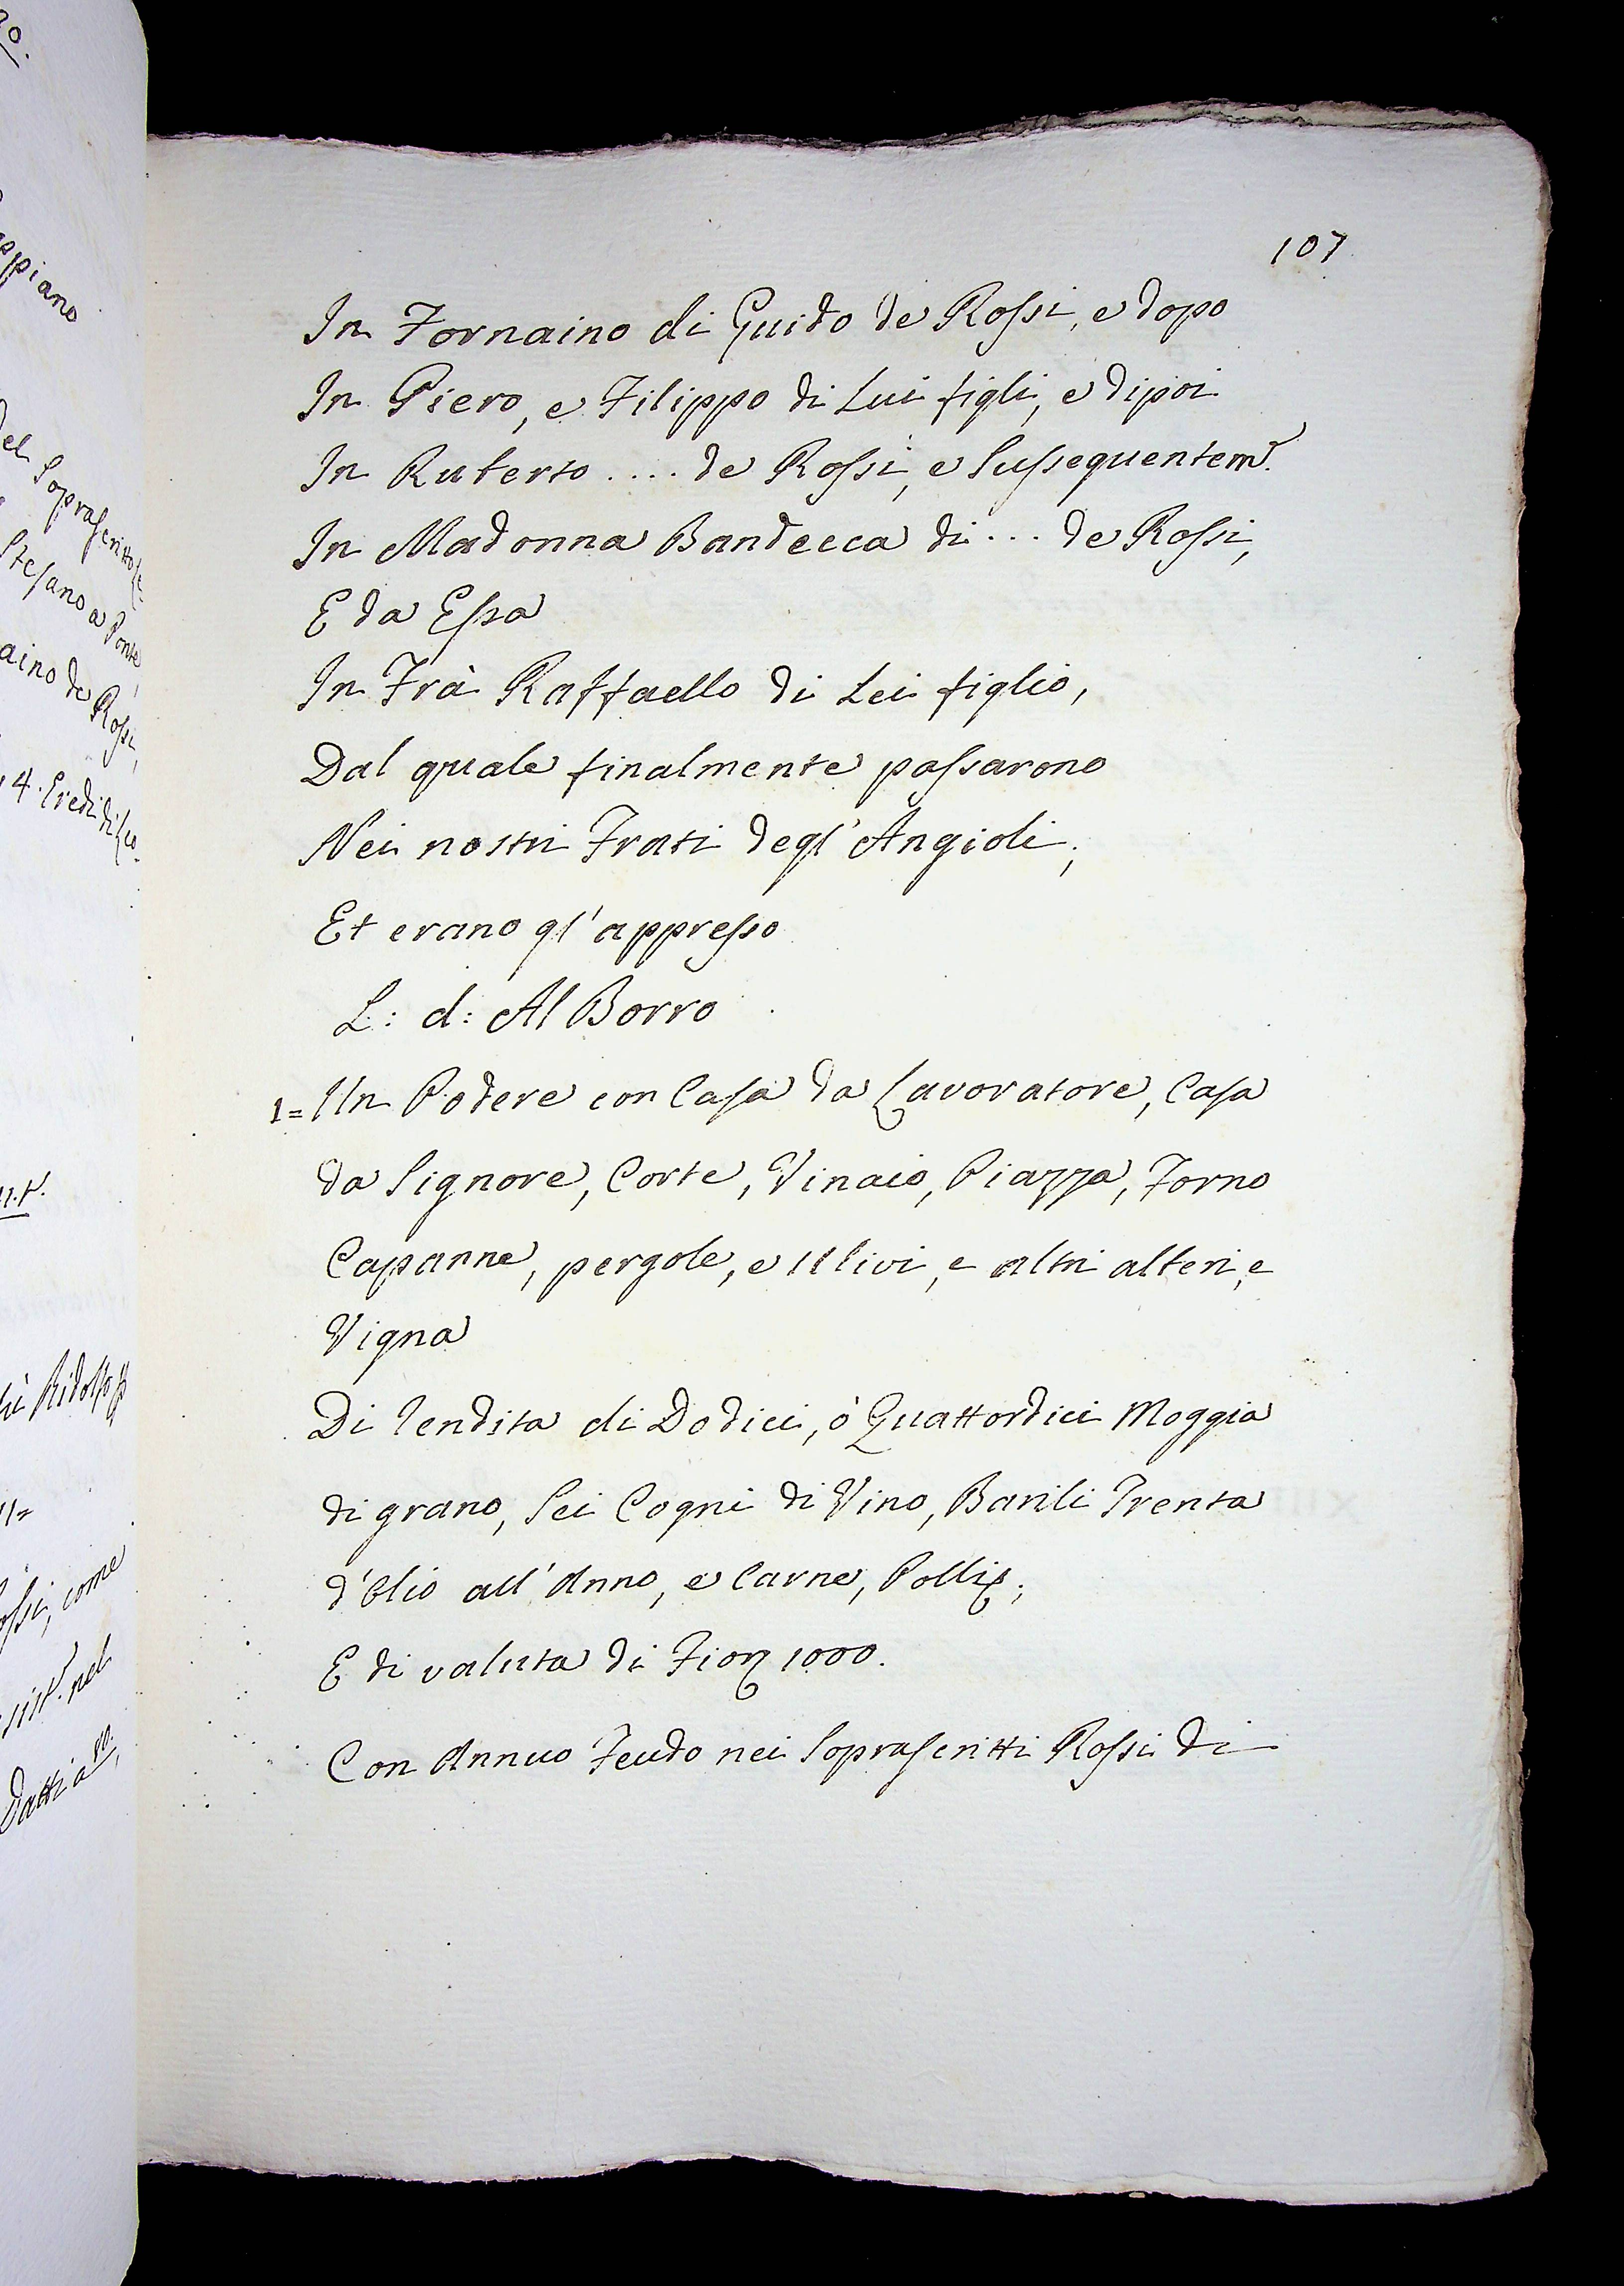 107
In Fornaino di Guido de Rossi, e dopo
In Piero, e Filippo di Lui figli, e dipoi
In Ruberto .... de Rossi, e Sussequentem.
In Madonna Bandecca di ... de Rossi,
E da Essa
In Frà Raffaello di Lei figlio,
Dal quale finalmente passarono
Nei nostri Frati degl' Angioli;
Et erano gl' appresso
L: d: Al Borro
1= Un Podere con Casa da Lavoratore, Casa
da Signore, Corte, Vinaio, Piazza, Forno
Capanne, pergole, e Ulivi, e altri alberi, e
Vigna
Di rendita di Dodici, ò Quattordici Moggia
di grano, Sei Cogni di Vino, Barili Trenta
d'Olio all' Anno, e Carne, Polli;
E di valuta di Fior 1000.
Con Annuo Feudo nei Soprascritti Rossi di
ppiano
del Soprascritto
Stefano a Ponte
aino de Rossi,
4. Eredi di
Ridolfo
ossi, come
nel
Datti